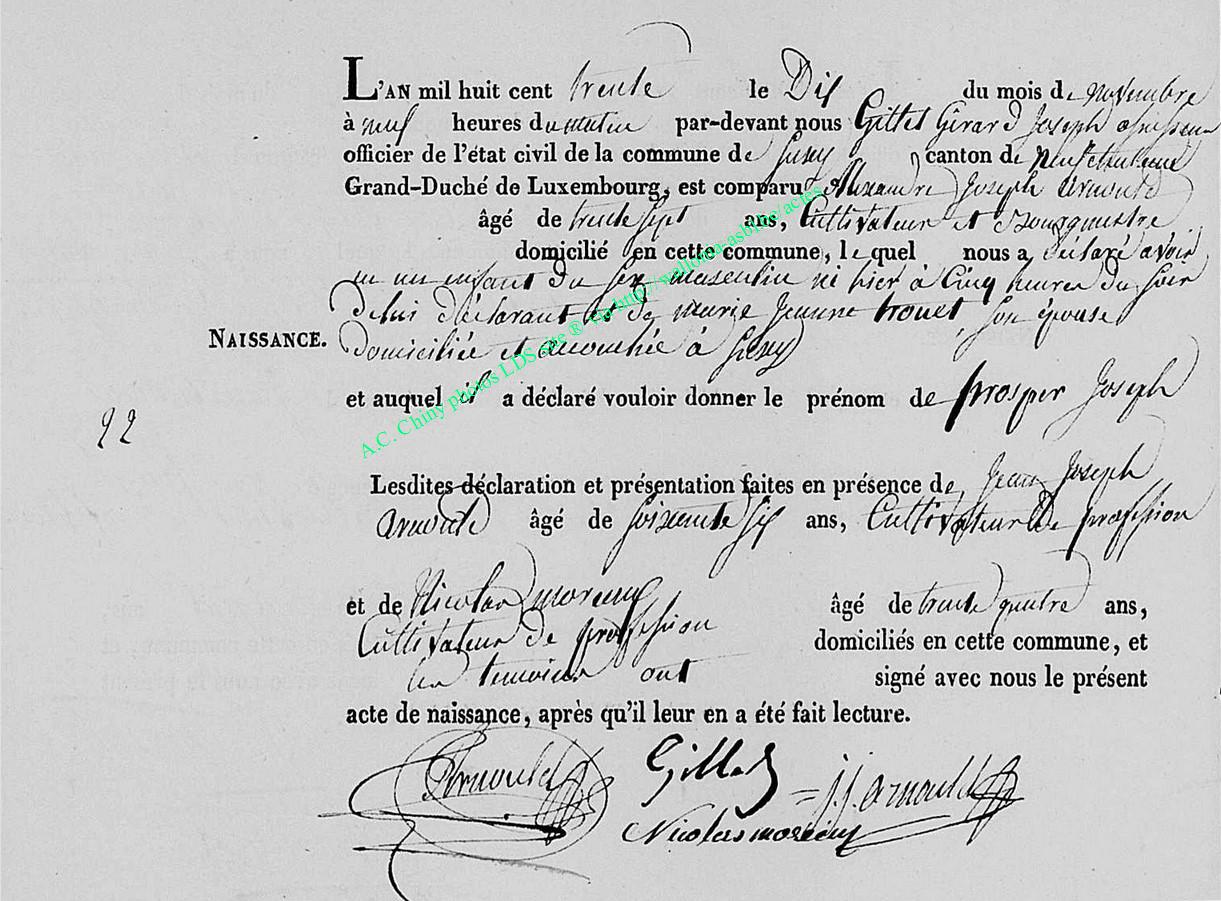 L'AN mil huit cent trente le Dix du mois de novembre
à neuf heures du matin par-devant nous Gillet Girard Joseph assesseur
officier de l'état civil de la commune de Suxy canton de neufchateau
Grand-Duché de Luxembourg, est comparu Alexandre Joseph arnould
âgé de trente sept ans, Cultivateur et Bourgmestre
domicilié en cette commune, le quel nous a déclaré avoir
eu un enfant du sex masculin né hier à Cinq heures du soir
de lui déclarant et de marie Jeanne son épouse
NAISSANCE. domiciliée et accouchée à Suxy
et auquel il a déclaré vouloir donner le prénom de prosper Joseph
22
Lesdites déclaration et présentation faites en présence de Jean Joseph
arnould âgé de soixante six ans, Cultivateur de profession
et de Nicolas moreau âgé de trente quatre ans,
Cultivateur de profession domiciliés en cette commune, et
les temoins ont signé avec nous le présent
acte de naissance, après qu'il leur en a été fait lecture.
Arnould Gillet J.J. arnould
Nicolas moreau
A.C. Chiny photos LDS site ® via http://wallonia-asbl.be/actes